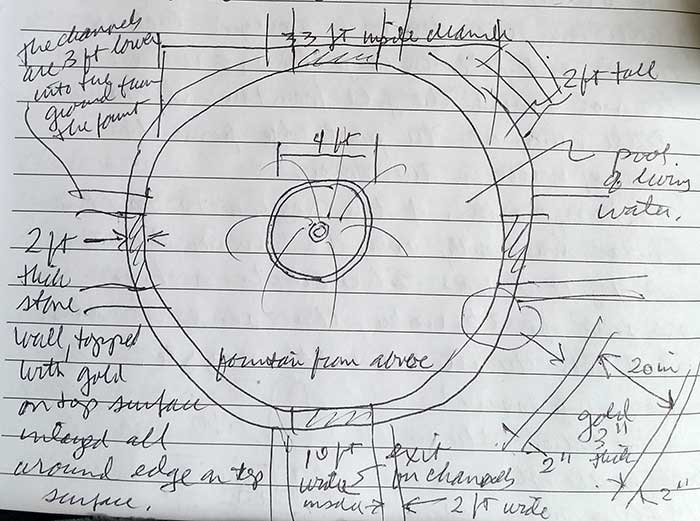 the channels
are 3 ft lower
into the
ground from
the fount
33 ft inside diameter
2 ft tall
4 ft
pool
of living
water.
2 ft
thick
stone
wall, topped
with gold
on top surface
inlayed all
around edge on top
surface.
fountain from above
10 ft
wide
inside
exit
on channels
2 ft wide
20 in
gold
3"
thick
2"
2"